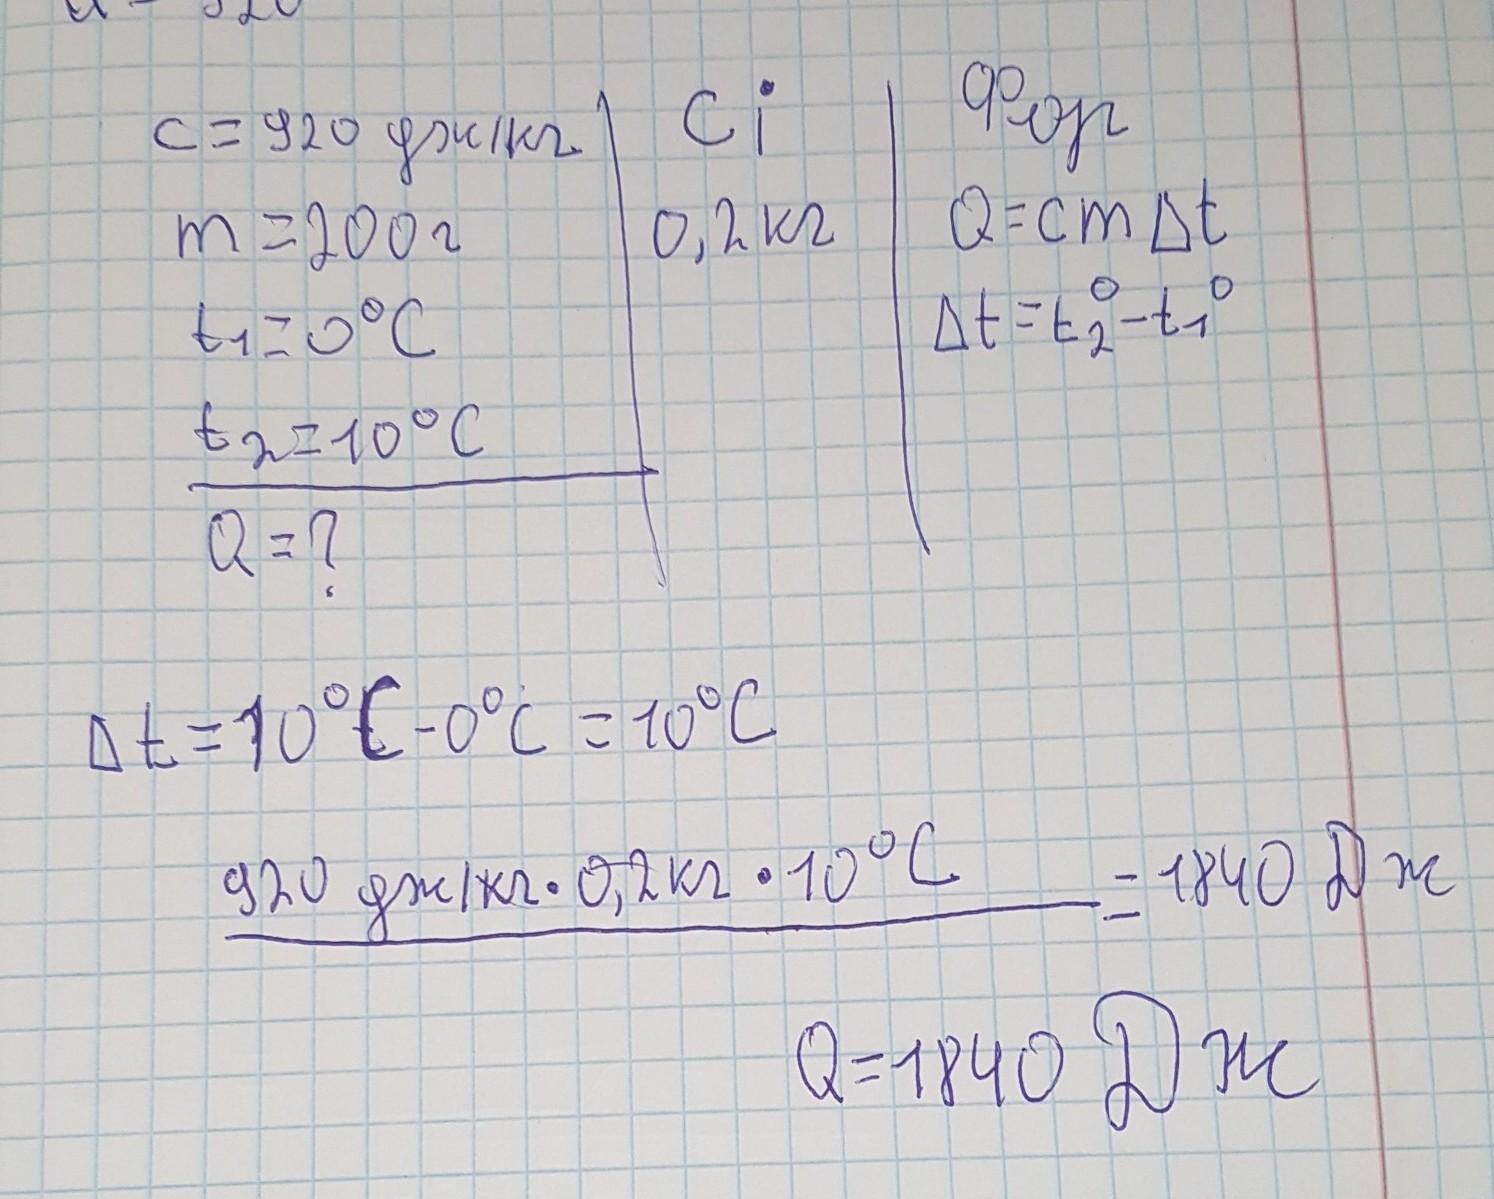 c = 920 дж/кг
m = 200г
t₁ = 0°C
t₂ = 10°C
Q = ?
Сі
0,2 кг
Фор
Q = cmΔt
Δt = t₂° - t₁°
Δt = 10°C - 0°C = 10°C
920 дж/кг · 0,2кг · 10°C = 1840 Дж
Q = 1840 Дж